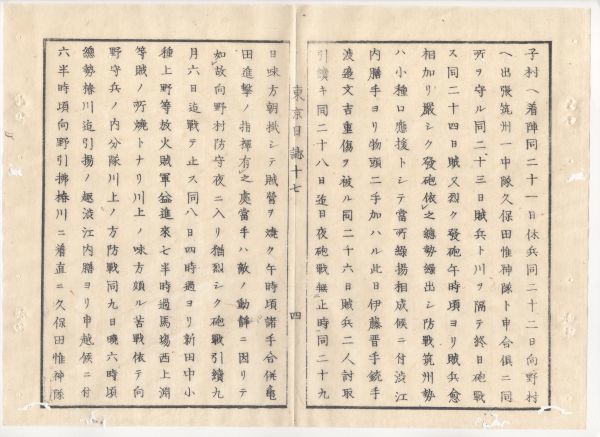 子村ヘ着陣同二十一日休兵同二十二日向野村
ヘ出張筑州一中隊久保田惟神隊ト申合俱ニ同
所ヲ守ル同二十三日賊兵ト川ヲ隔テ終日砲戰
ス同二十四日賊又烈ク發砲午時頃ヨリ賊兵愈
相加リ嚴シク發砲依之總勢繰出シ防戰筑州勢
ハ小種口應援トシテ當所繰揚相成候ニ付渋江
内膳手ヨリ物頭二手加ハル此日伊藤晋手銃手
渡邉文吉重傷ヲ被ル同二十六日賊兵二人討取
引續キ同二十八日迠日夜砲戰無止時同二十九
東京日誌十七
四
日味方朝掀シテ賊營ヲ燒ク午時頃諸手合併亀
田進擊ノ指揮有之處當手ハ敵ノ動静ニ因リテ
如故向野村防守夜ニ入リ猶烈シク砲戰引續九
月六日迠戰テ止ス同八日四時過ヨリ新田中小
種上野等放火賊軍益進來七半時過馬塲西上淵
等賊ノ所燒トナリ川上ノ味方頗ル苦戰依テ向
野守兵ノ内分隊川上ノ方防戰同九日曉六時頃
總勢椿川迠引揚ノ趣渋江内膳ヨリ申越候ニ付
六半時頃向野引拂椿川ニ着直ニ久保田惟神隊